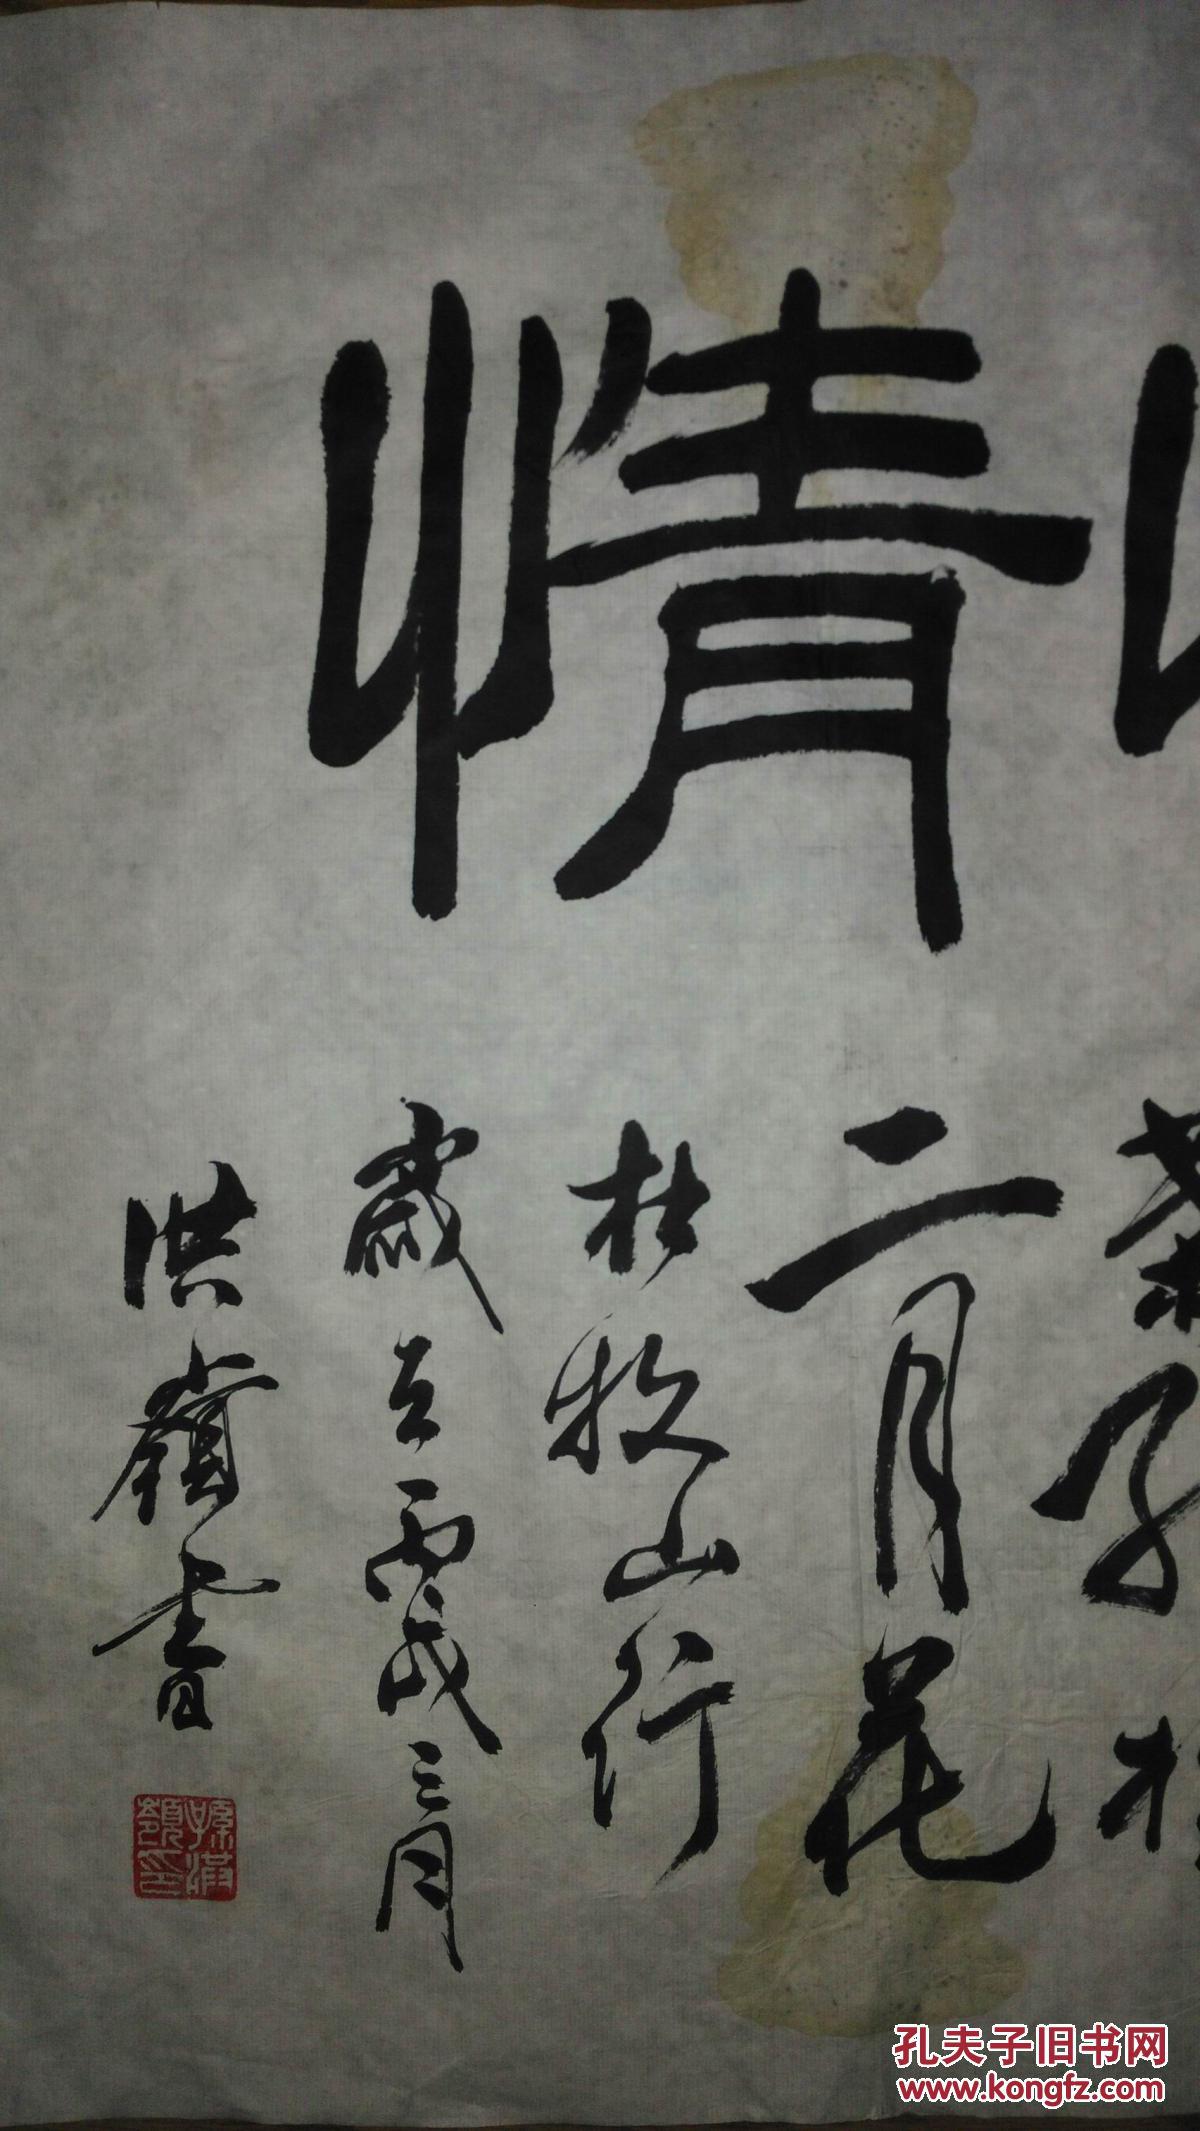 情
葉紅於
二月花
杜牧山行
歲在丙戌三月
洪嶺書
孫洪嶺印
孔夫子旧书网
www.kongfz.com